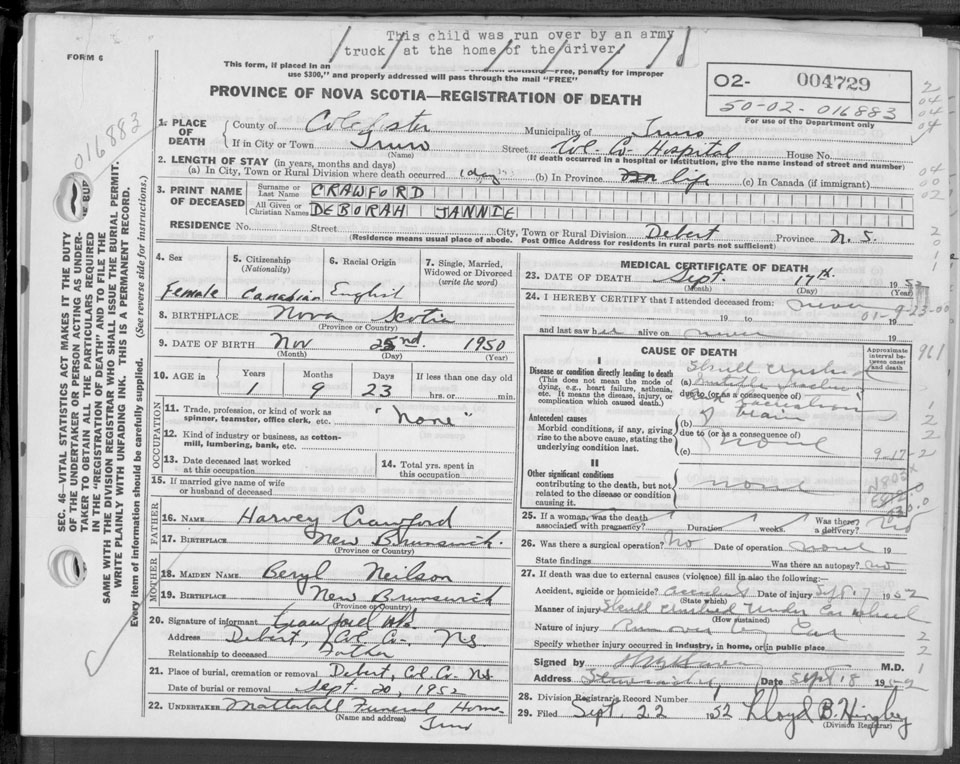 This child was run over by an army
truck at the home of the driver
FORM 6
This form, if placed in an
use $300," and properly addressed will pass through the mail "FREE"
Free, penalty for improper
PROVINCE OF NOVA SCOTIA—REGISTRATION OF DEATH
O2- 004729
50-02-016883
For use of the Department only
016883
SEC. 46—VITAL STATISTICS ACT MAKES IT THE DUTY
OF THE UNDERTAKER OR PERSON ACTING AS UNDER-
TAKER TO OBTAIN ALL THE PARTICULARS REQUIRED
IN THE "REGISTRATION OF DEATH" AND TO FILE THE
SAME WITH THE DIVISION REGISTRAR WHO SHALL ISSUE THE BURIAL PERMIT.
WRITE PLAINLY WITH UNFADING INK. THIS IS A PERMANENT RECORD.
Every item of information should be carefully supplied. (See reverse side for instructions.)
1. PLACE OF DEATH
County of Colchester Municipality of Truro
If in City or Town Truro Street Col. Co. Hospital House No.
(Name) (If death occurred in a hospital or institution, give the name instead of street and number)
2. LENGTH OF STAY (in years, months and days)
(a) In City, Town or Rural Division where death occurred 1 day (b) In Province life (c) In Canada (if immigrant)
3. PRINT NAME OF DECEASED
Surname or Last Name CRAWFORD
All Given or Christian Names DEBORAH JANNIE
RESIDENCE No. Street City, Town or Rural Division Debert Province N.S.
(Residence means usual place of abode. Post Office Address for residents in rural parts not sufficient)
4. Sex Female
5. Citizenship (Nationality) Canadian
6. Racial Origin English
7. Single, Married, Widowed or Divorced (write the word)
8. BIRTHPLACE Nova Scotia
(Province or Country)
9. DATE OF BIRTH Nov 1950
(Month) (Day) (Year)
10. AGE in Years 1 Months 9 Days 23 If less than one day old
hrs. or min.
OCCUPATION
11. Trade, profession, or kind of work as spinner, teamster, office clerk, etc. "None"
12. Kind of industry or business, as cotton-mill, lumbering, bank, etc.
13. Date deceased last worked at this occupation
14. Total yrs. spent in this occupation
15. If married give name of wife or husband of deceased
FATHER
16. NAME Harvey Crawford
17. BIRTHPLACE New Brunswick
(Province or Country)
MOTHER
18. MAIDEN NAME Beryl Neilson
19. BIRTHPLACE New Brunswick
(Province or Country)
20. Signature of informant Crawford
Address Debert, Col. Co. N.S.
Relationship to deceased Father
21. Place of burial, cremation or removal Debert, Col. Co. N.S.
Date of burial or removal Sept. 20, 1952
22. UNDERTAKER Mattatall Funeral Home
(Name and address) Truro
MEDICAL CERTIFICATE OF DEATH
23. DATE OF DEATH Sept. 17th. 195
(Month) (Day) (Year)
24. I HEREBY CERTIFY that I attended deceased from: never
19 to 19
01-9-23-00
and last saw her alive on never 19
961
CAUSE OF DEATH
Approximate interval between onset and death
I
Disease or condition directly leading to death
(This does not mean the mode of dying, e.g., heart failure, asthenia, etc. It means the disease, injury, or complication which caused death.)
(a) Skull Crushed
due to (or as a consequence of)
Antecedent causes
Morbid conditions, if any, giving rise to the above cause, stating the underlying condition last.
(b) Laceration of brain
due to (or as a consequence of)
(c) none
9-17-2
II
Other significant conditions
contributing to the death, but not related to the disease or condition causing it.
none
25. If a woman, was the death associated with pregnancy? Duration weeks. Was there a delivery? no
26. Was there a surgical operation? No Date of operation none 19
State findings Was there an autopsy? no
27. If death was due to external causes (violence) fill in also the following:
Accident, suicide or homicide? accident Date of injury Sept 17 1952
(State which)
Manner of injury Skull crushed under car wheel
(How sustained)
Nature of injury Run over by Car
Specify whether injury occurred in industry, in home, or in public place
Signed by M.D.
Address Date Sept 18 1952
28. Division Registrar's Record Number
29. Filed Sept. 22 1952 Lloyd B. Hingley
(Division Registrar)